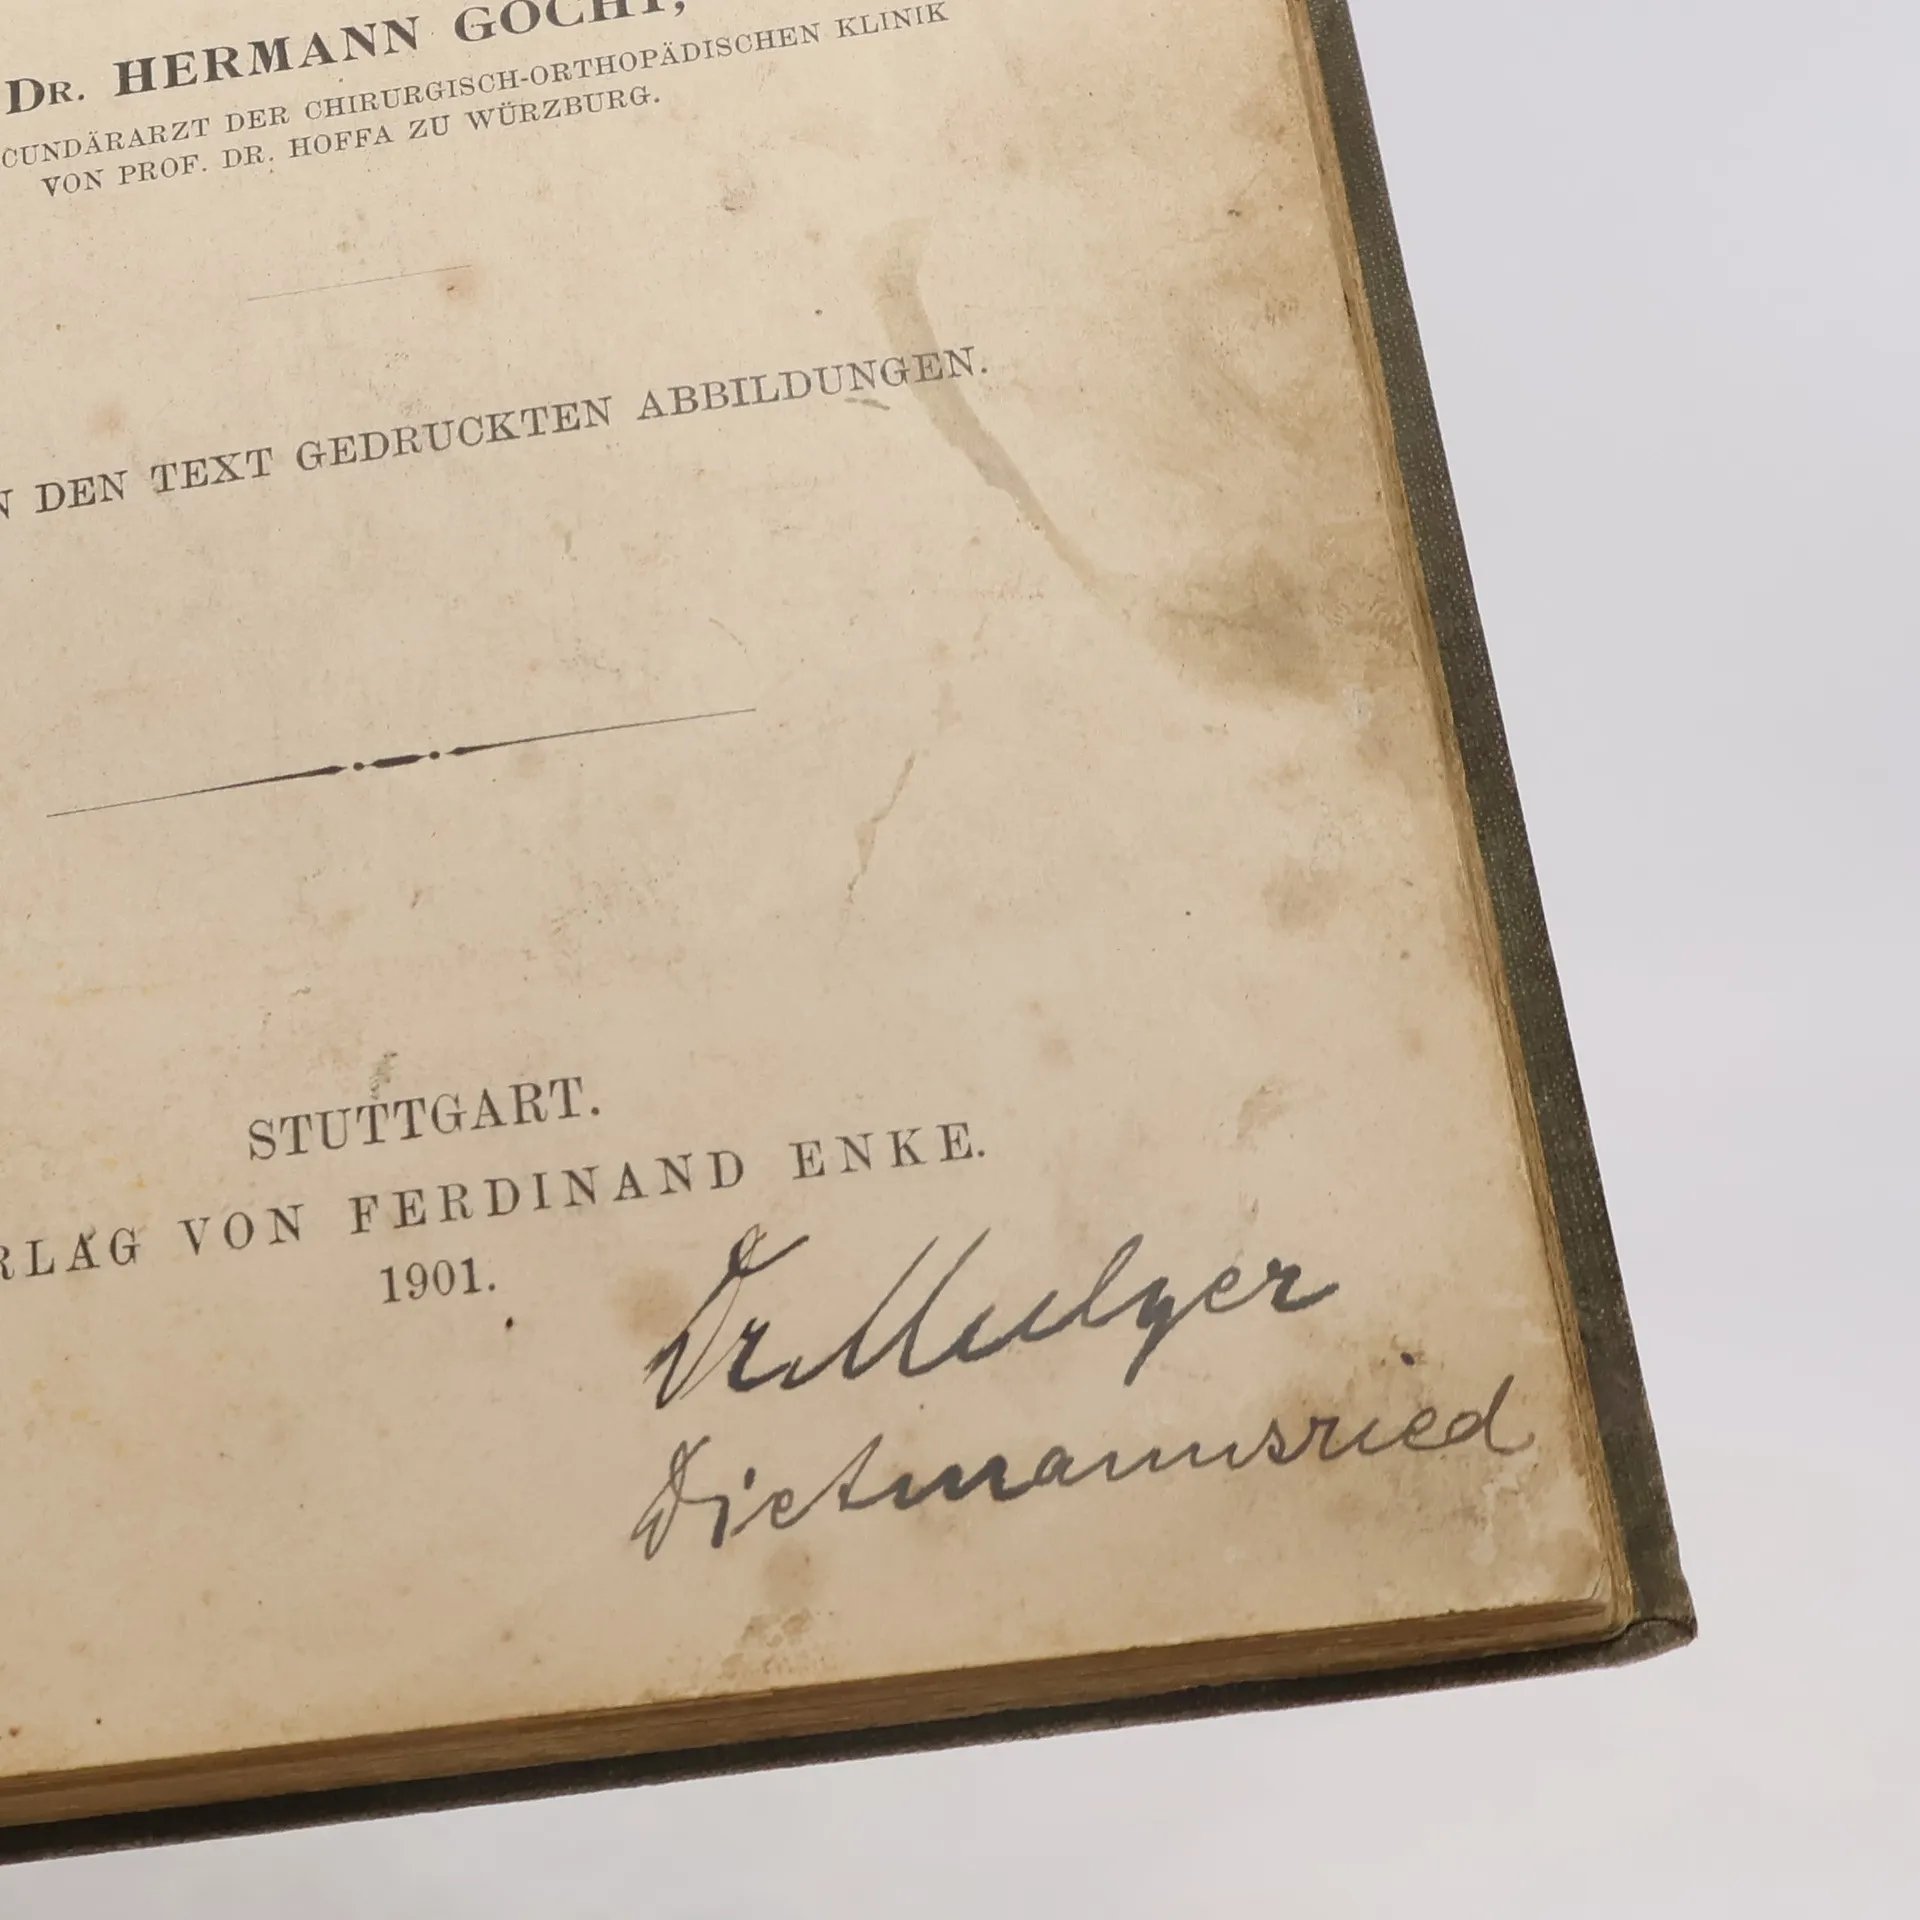 Dr. HERMANN GOCHT,
CUNDÄRARZT DER CHIRURGISCH-ORTHOPÄDISCHEN KLINIK
VON PROF. DR. HOFFA ZU WÜRZBURG.
N DEN TEXT GEDRUCKTEN ABBILDUNGEN.
STUTTGART.
RLAG VON FERDINAND ENKE.
1901.
Dr. Mulzer
Dietmannsried